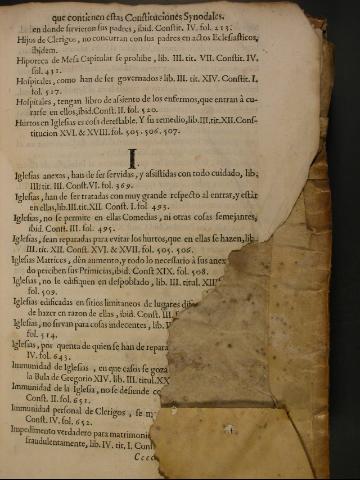 que contienen estas Constituciones Synodales.
en donde sirvieron sus padres, ibid. Constit. IV. fol. 213.
Hijos de Clerigos, no concurran con sus padres en actos Eclesiasticos,
ibidem.
Hipoteca de Mesa Capitular se prohibe, lib. III. tit. VII. Constit. IV.
fol. 431.
Hospitales, como han de ser governados? lib. III. tit. XIV. Constit. I.
fol. 517.
Hospitales, tengan libro de assiento de los enfermos, que entran à cu-
rarse en ellos, ibid. Const. II. fol. 520.
Hurtos en Iglesias es cosa detestable. Y su remedio, lib. III. tit. XII. Cons-
titucion XVI. & XVIII. fol. 505. 506. 507.
I.
Iglesias anexos, han de ser servidas, y assistidas con todo cuidado, lib.
III. tit. III. Const. VI. fol. 369.
Iglesias, han de ser tratadas con muy grande respecto al entrar, y estàr
en ellas, lib. III. tit. XII. Const. I. fol. 493.
Iglesias, no se permite en ellas Comedias, ni otras cosas semejantes,
ibid. Const. III. fol. 495.
Iglesias, sean reparadas para evitar los hurtos, que en ellas se hazen, lib.
III. tit. XII. Const. XVI. & XVII. fol. 505. 506.
Iglesias Matrices, dèn aumento, y todo lo necesario à sus anex
do perciben sus Primicias, ibid. Const XIX. fol. 508.
Iglesias, no se edifiquen en despoblado, lib. III. titul. XIII
fol. 509.
Iglesias edificadas en sitios limitaneos de lugares
de hazer en razon de ellas, ibid. Const. III.
Iglesias, no sirvan para cosas indecentes, lib.
fol. 514.
Iglesias, por quenta de quien se han de repara
IV. fol. 643.
Immunidad de Iglesias, en que casos se goza
la Bula de Gregorio XIV. lib. III. titul. XX
Immunidad de la Iglesia, no se desiende
Const. II. fol. 651.
Immunidad personal de Clerigos, se
Const. IV. fol. 652.
Impedimento verdadero para matrimoni
fraudulentamente, lib. IV. tit. I. Const
Cccc